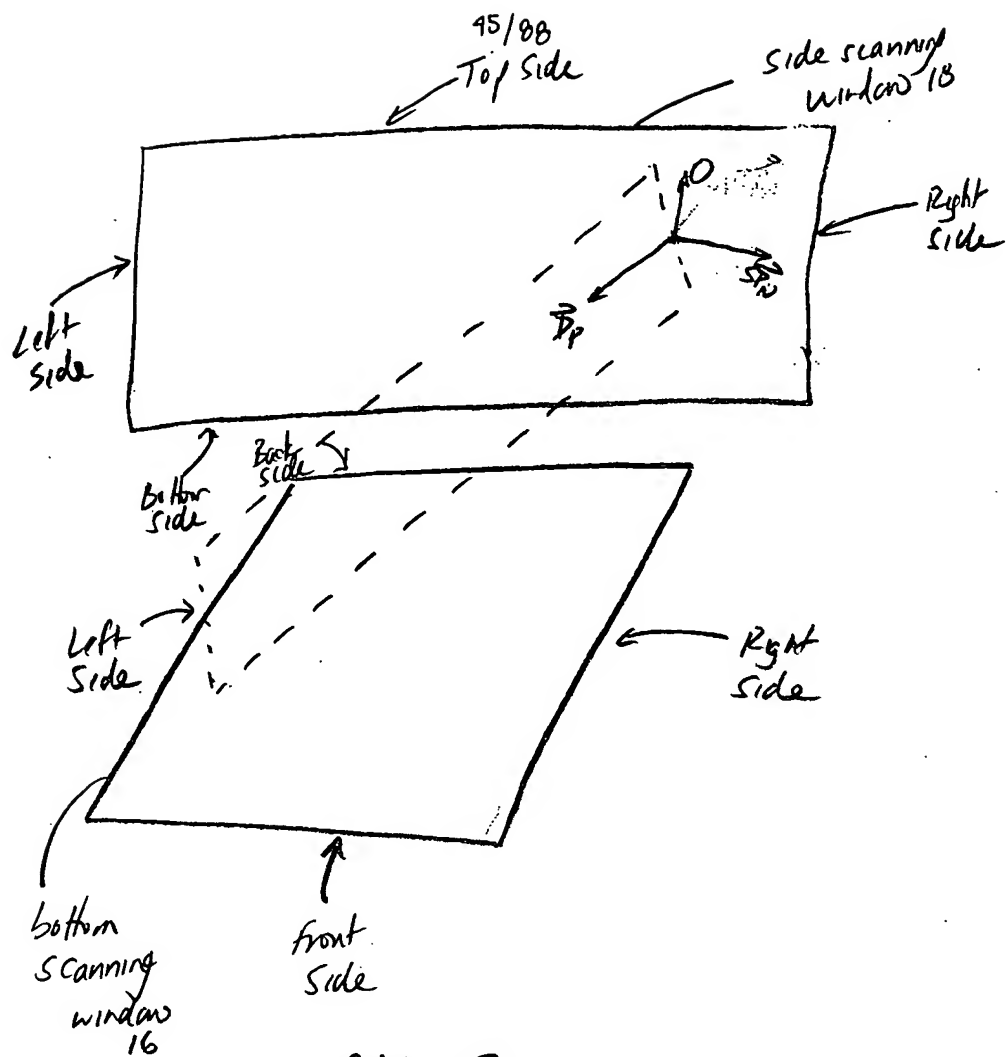 45/88
Top Side
Side scanning
window 18
Right
side
Left
side
O
D_P
Back
side
Bottom
side
Left
Side
Right
side
bottom
scanning
window
16
front
side